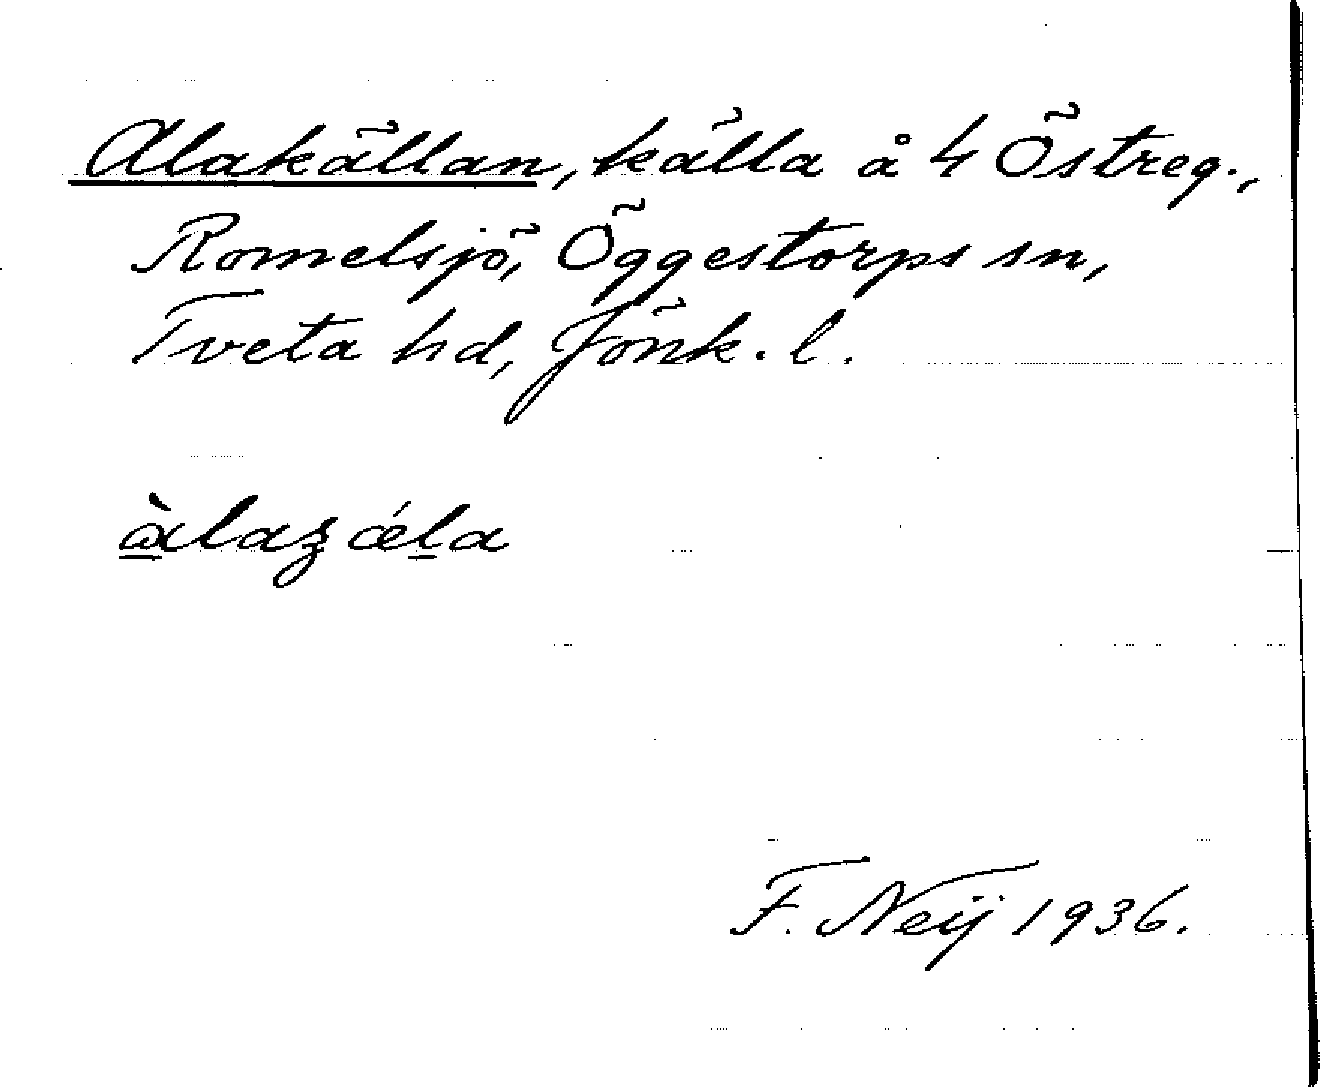 Alakällan, källa å 4 Östreg.,
Romelsjö, Öggestorps sn,
Tveta hd, Jönk. l.
àlaʒǽla
F. Neij 1936.